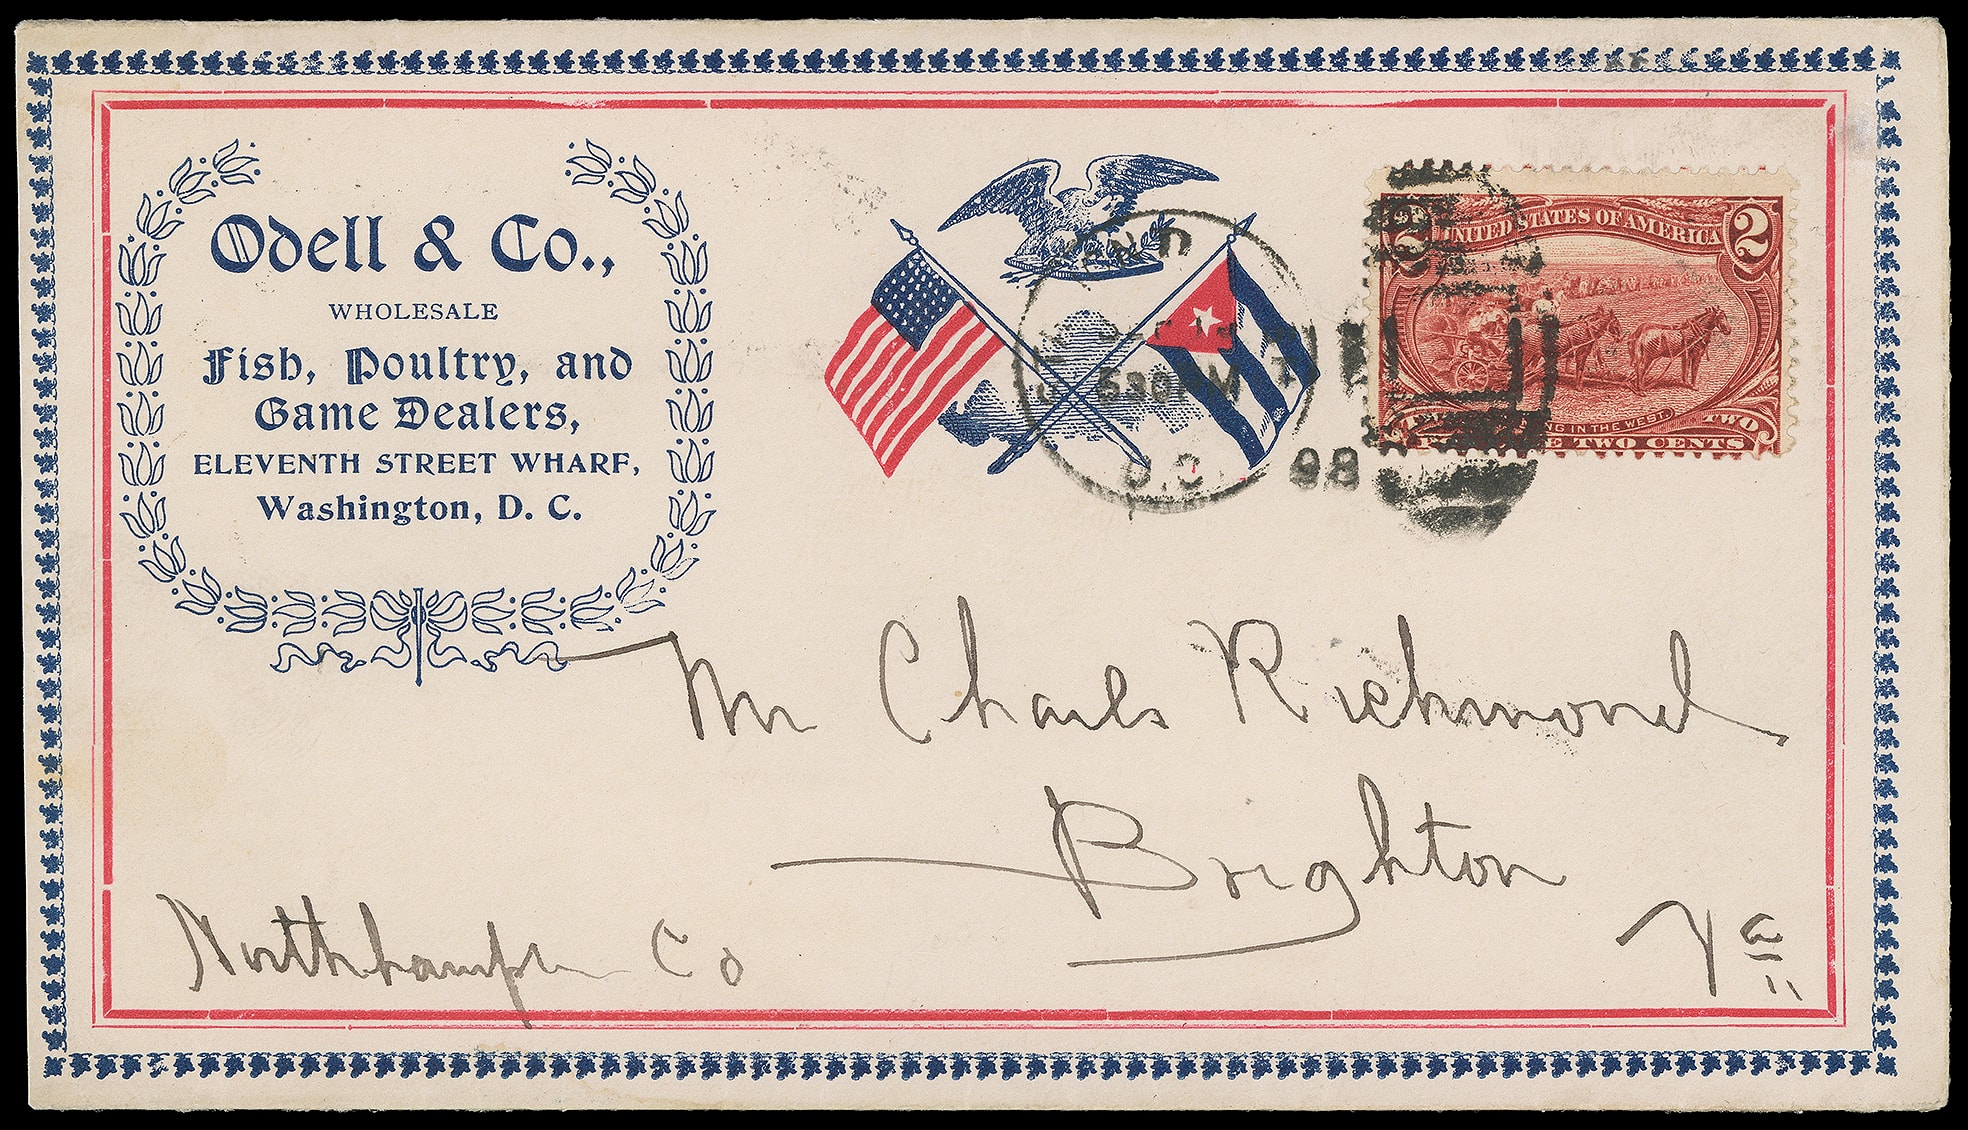 Odell & Co.,
WHOLESALE
Fish, Poultry, and
Game Dealers,
ELEVENTH STREET WHARF,
Washington, D. C.
630 PM
D.C. 98
2 UNITED STATES OF AMERICA 2
IN THE WEST.
TWO
TWO CENTS
Mr Charls Richmond
Brighton
Northhampton Co
Va